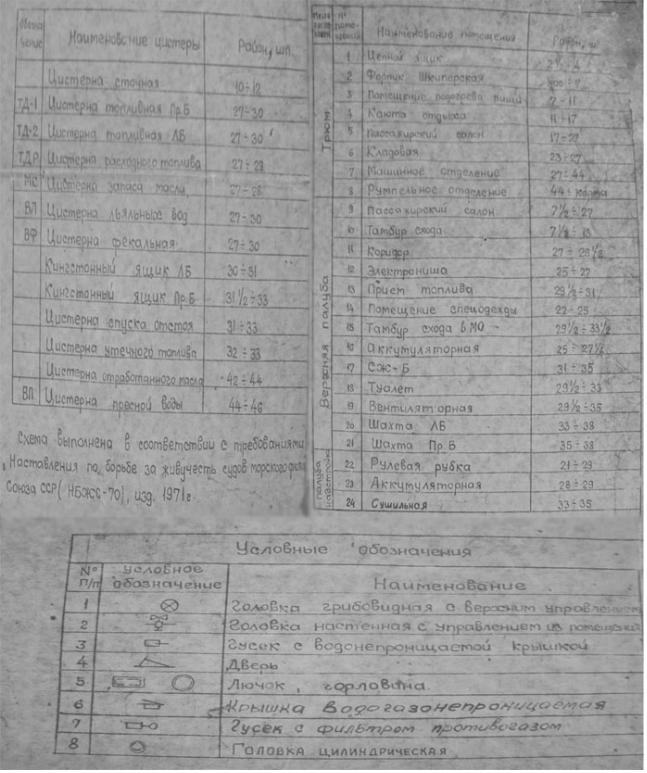 Обозначение Наименование цистерны Район, шп.
Цистерна сточная 10÷12
ТД-1 Цистерна топливная Пр.Б 27-30
ТД-2 Цистерна топливная ЛБ 27-30
ТДР Цистерна расходного топлива 27÷29
МС Цистерна запаса масла 27-28
ВЛ Цистерна льяльных вод 27-30
ВФ Цистерна фекальная 27÷30
Кингстонный ящик ЛБ 30÷31
Кингстонный ящик Пр.Б 31 1/2÷33
Цистерна спуска отстоя 31÷33
Цистерна утечного топлива 32÷33
Цистерна отработанного масла 42÷44
ВП Цистерна пресной воды 44÷46
Схема выполнена в соответствии с требованиями
Наставления по борьбе за живучесть судов морского флота
Союза ССР (НБЖС-70), изд. 1971г.
№ помещений Наименование помещения Район, ш
Трюм
1 Цепной ящик
2 Форпик шкиперская
3 Помещение подогрева пищи 7-11
4 Каюта отдыха 11÷17
5 Пассажирский салон 17-27
6 Кладовая 23÷27
7 Машинное отделение 27÷44
8 Румпельное отделение 44÷корма
Верхняя палуба
9 Пассажирский салон 7 1/2÷27
10 Тамбур схода
11 Коридор 27÷29 1/2
12 Электрониша 25÷27
13 Прием топлива 29 1/2÷31
14 Помещение спецодежды 22-25
15 Тамбур схода в МО 29 1/2÷33 1/2
16 Аккумуляторная 25÷27 1/2
17 СЖ-Б 31÷35
18 Туалет 29 1/2÷33
19 Вентиляторная 29 1/2÷35
20 Шахта ЛБ 33÷38
21 Шахта Пр.Б 35÷38
палуба надстройки
22 Рулевая рубка 21÷29
23 Аккумуляторная 28÷29
24 Сушильная 33÷35
Условные обозначения
№ п/п условное обозначение Наименование
1 Головка грибовидная с верхним управлением
2 Головка настенная с управлением из помещения
3 Гусек с водонепроницаемой крышкой
4 Дверь
5 Лючок, горловина
6 Крышка водогазонепроницаемая
7 Гусек с фильтром противогазом
8 Головка цилиндрическая